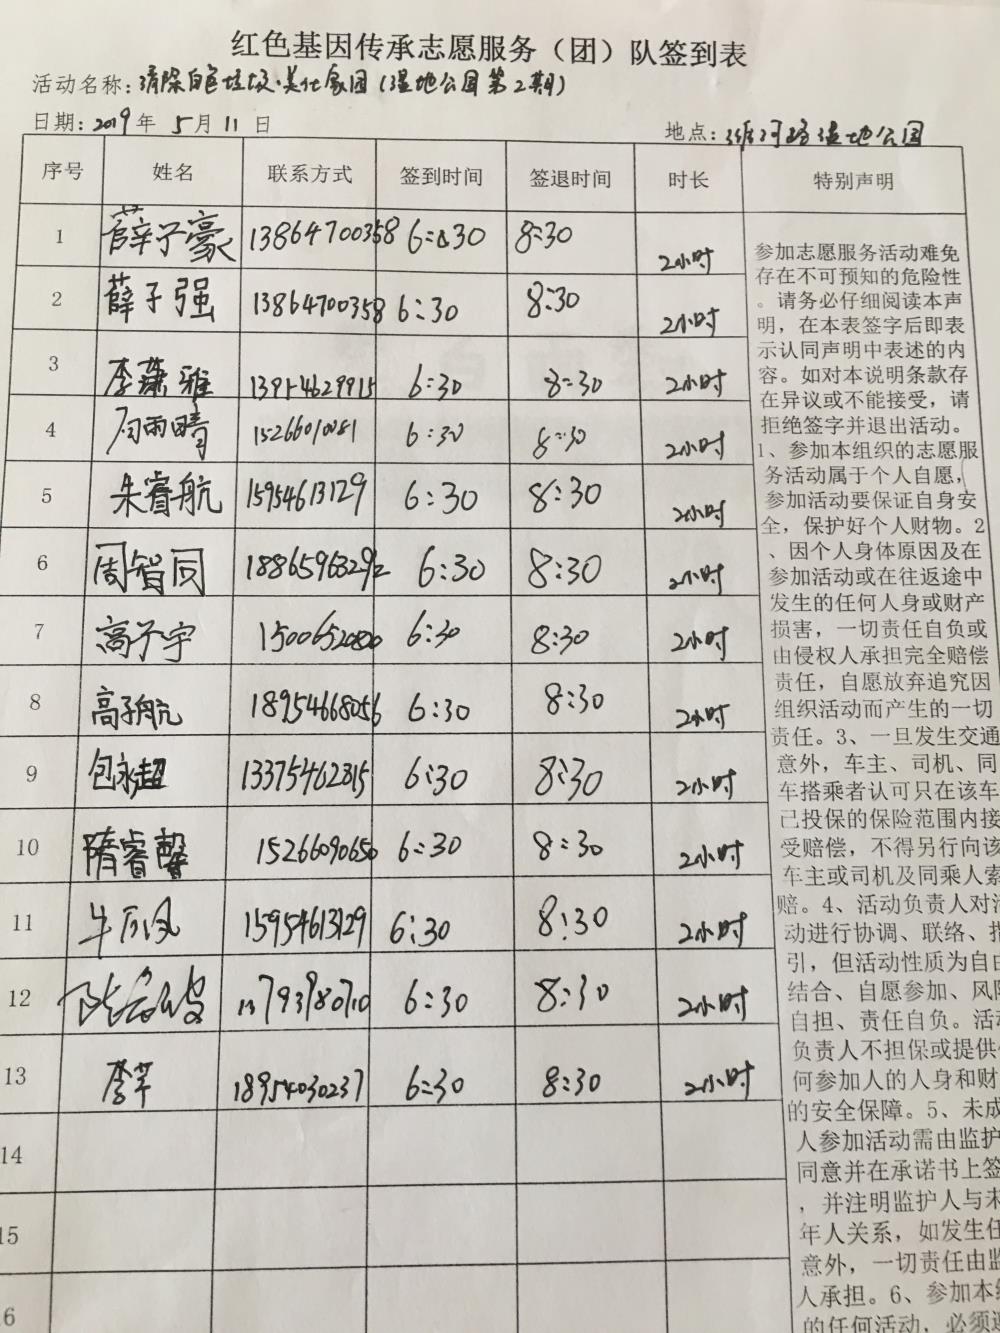 红色基因传承志愿服务（团）队签到表
活动名称：清除白色垃圾·美化家园（湿地公园第2期）
日期：2019年 5月 11 日
地点：湿地公园
序号 姓名 联系方式 签到时间 签退时间 时长 特别声明
1 薛子豪 13864700358 6:30 8:30 2小时
2 薛子强 13864700358 6:30 8:30 2小时
3 李潇雅 13954629915 6:30 8:30 2小时
4 雨晴 15266010081 6:30 8:30 2小时
5 朱睿航 15954613129 6:30 8:30 2小时
6 周智同 18865963292 6:30 8:30 2小时
7 高子宇 6:30 8:30 2小时
8 高子航 18954668056 6:30 8:30 2小时
9 包永超 13375462815 6:30 8:30 2小时
10 隋睿馨 15266090650 6:30 8:30 2小时
11 牛凤 15954613129 6:30 8:30 2小时
12 13793980710 6:30 8:30 2小时
13 李芊 18954030237 6:30 8:30 2小时
14
15
16
参加志愿服务活动难免
存在不可预知的危险性
。请务必仔细阅读本声
明，在本表签字后即表
示认同声明中表述的内
容。如对本说明条款存
在异议或不能接受，请
拒绝签字并退出活动。
1、参加本组织的志愿服
务活动属于个人自愿，
参加活动要保证自身安
全，保护好个人财物。2
、因个人身体原因及在
参加活动或在往返途中
发生的任何人身或财产
损害，一切责任自负或
由侵权人承担完全赔偿
责任，自愿放弃追究因
组织活动而产生的一切
责任。3、一旦发生交通
意外，车主、司机、同
车搭乘者认可只在该车
已投保的保险范围内接
受赔偿，不得另行向该
车主或司机及同乘人索
赔。4、活动负责人对活
动进行协调、联络、指
引，但活动性质为自由
结合、自愿参加、风险
自担、责任自负。活动
负责人不担保或提供任
何参加人的人身和财
的安全保障。5、未成
人参加活动需由监护
同意并在承诺书上签
，并注明监护人与未
年人关系，如发生任
意外，一切责任由监
人承担。6、参加本组
的任何活动，必须遵